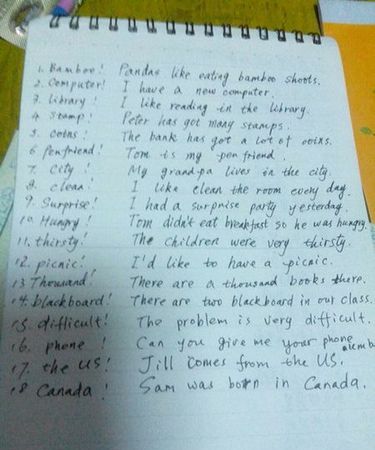 1. Bamboo! Pandas like eating bamboo shoots.
2. Computer! I have a new computer.
3. library! I like reading in the library.
4. Stamp! Peter has got many stamps.
5. coins! The bank has got a lot of coins.
6. penfriend! Tom is my penfriend.
7. City! My grandpa lives in the city.
8. clean! I like clean the room every day.
9. Surprise! I had a surprise party yesterday.
10. Hungry! Tom didn't eat breakfast so he was hungry.
11. thirsty! The children were very thirsty.
12. picnic! I'd like to have a picnic.
13 Thousand! There are a thousand books there.
14. blackboard! There are two blackboard in our class.
15. difficult! The problem is very difficult.
16. phone! Can you give me your phone
17. the US! Jill comes from the US.
18 Canada! Sam was born in Canada.